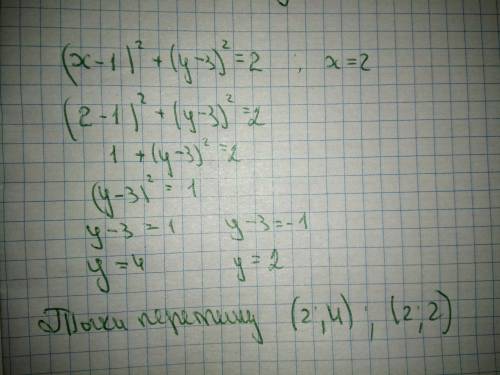 (x-1)² + (y-3)² = 2 ; x=2
(2-1)² + (y-3)² = 2
1 + (y-3)² = 2
(y-3)² = 1
y-3 = 1 y-3 = -1
y = 4 y = 2
Точки перетину (2; 4) ; (2; 2)